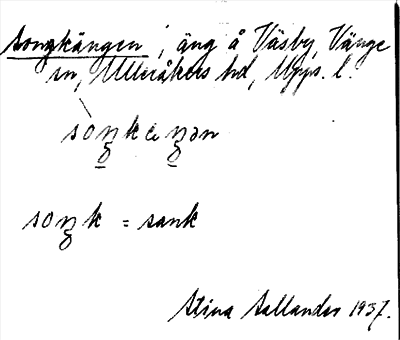 Songkängen, äng å Väsby, Vänge
sn, Ulleråkers hd, Upps. l.
sòŋkeŋən
soŋk = sank
Stina Sallander 1937.